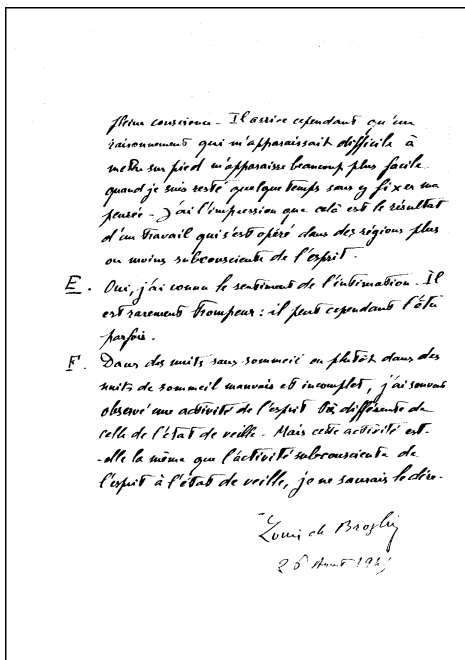 pleine conscience - Il arrive cependant qu'un
raisonnement qui m'apparaissait difficile à
mettre sur pied m'apparaisse beaucoup plus facile
quand je suis resté quelque temps sans y fixer ma
pensée - J'ai l'impression que celà est le résultat
d'un travail qui s'est opéré dans des régions plus
ou moins subconscientes de l'esprit.
E. Oui, j'ai connu le sentiment de l'intimation. Il
est rarement trompeur : il peut cependant l'être
parfois.
F. Dans des nuits sans sommeil ou plutôt dans des
nuits de sommeil mauvais et incomplet, j'ai souvent
observé une activité de l'esprit très différente de
celle de l'état de veille - Mais cette activité est-
-elle la même que l'activité subconsciente de
l'esprit à l'état de veille, je ne saurais le dire.
Louis de Broglie
26 Août